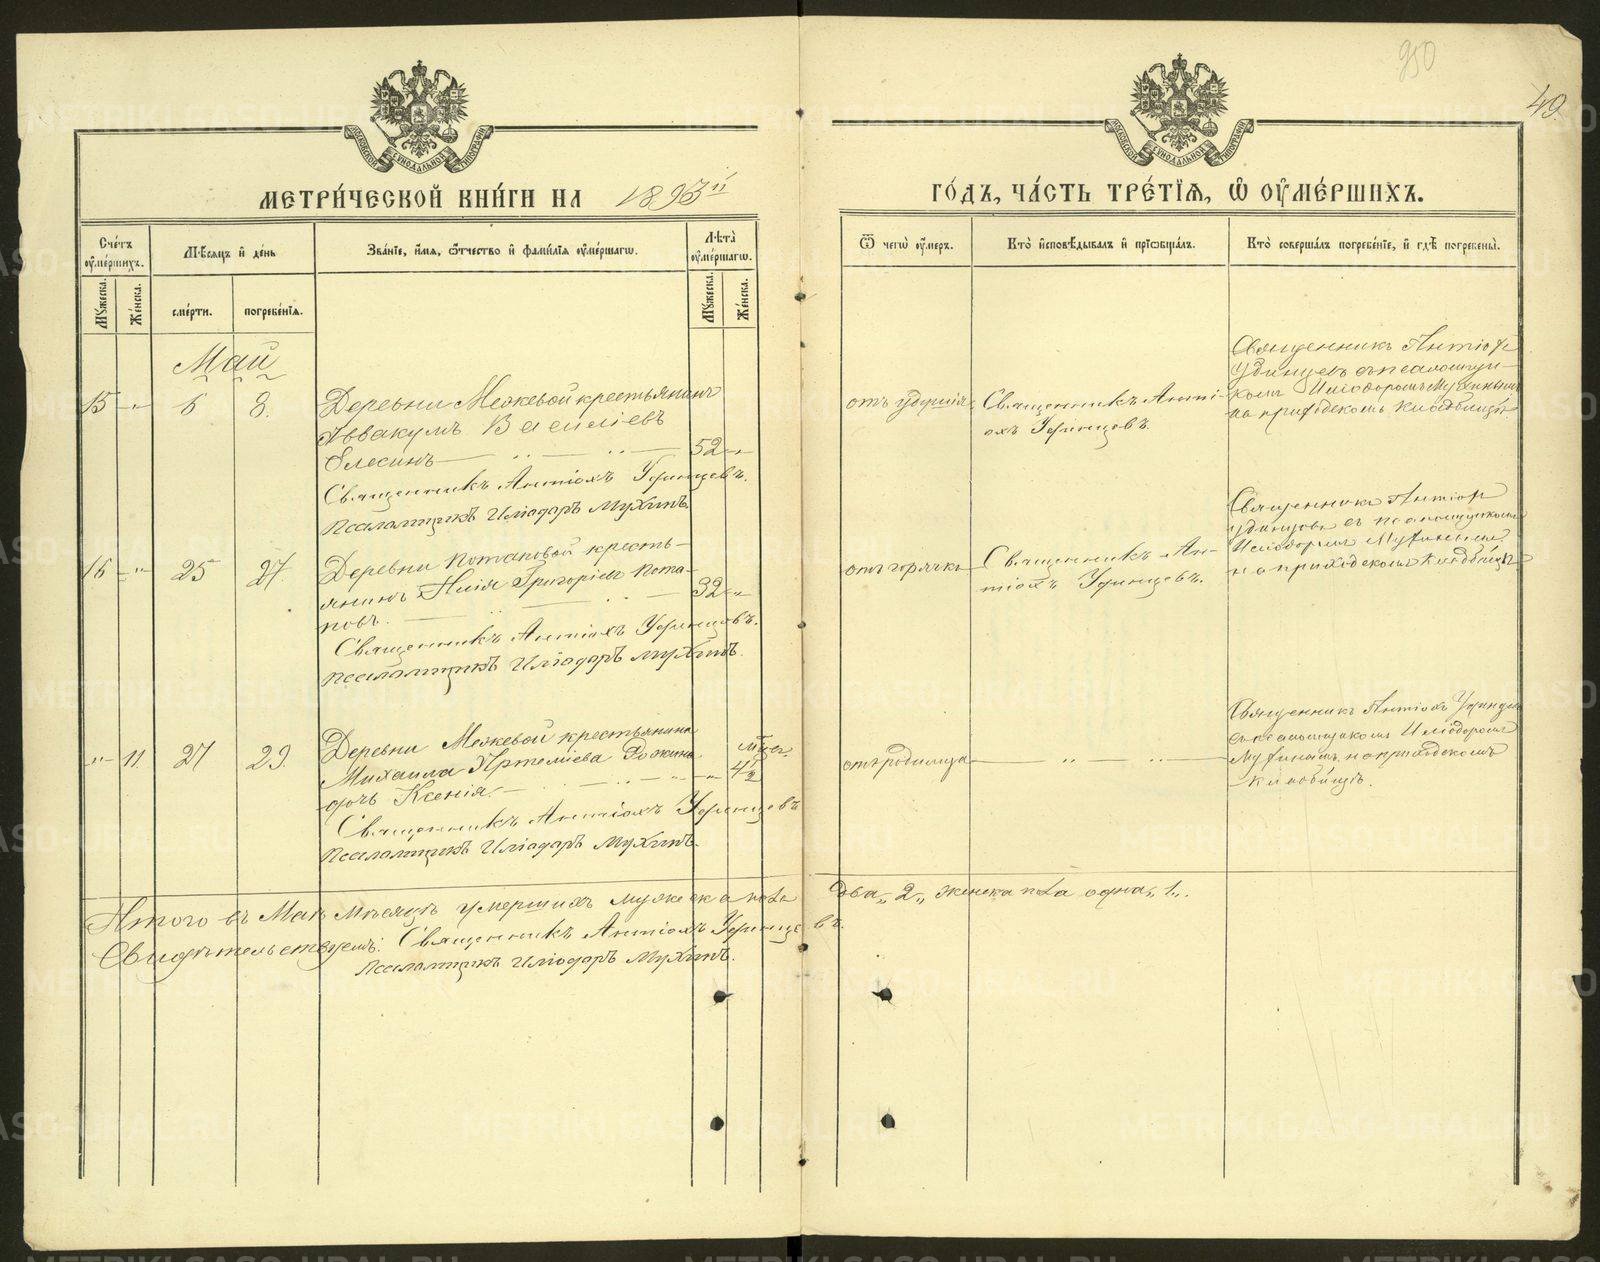 950
49.
МОСКОВСКОЙ СѴНОДАЛЬНОЙ ТИПОГРАФІИ
МОСКОВСКОЙ СѴНОДАЛЬНОЙ ТИПОГРАФІИ
МЕТРИ́ЧЕСКОЙ КНИ́ГИ НА 1893й
ГО́ДЪ, ЧА́СТЬ ТРЕ́ТІѦ, Ѡ҆ ОУ҆МЕ́РШИХЪ.
Сче́тъ оу҆ме́ршихъ.
Му́жеска.
Же́нска.
Мѣ́сѧцъ и҆ де́нь
сме́рти.
погребе́нїѧ.
Зва́нїе, и҆́мѧ, ѻ҆́тчество и҆ фами́лїѧ оу҆ме́ршагѡ.
Лѣ́та оу҆ме́ршагѡ.
Му́жеска.
Же́нска.
Ѿ чегѡ̀ оу҆́меръ.
Кто̀ и҆сповѣ́дывалъ и҆ прїѡбща́лъ.
Кто̀ соверша́лъ погребе́нїе, и҆ гдѣ̀ погребены̀.
Май
15 — „ 6 8.
Деревни Межевой крестьянинъ
Аввакумъ Василіевъ
Олесинъ — „ — „ — 52 — „
Священникъ Антіохъ Удинцевъ.
Псаломщикъ Иліодоръ Мухинъ.
отъ удушія
Священникъ Анті-
охъ Удинцовъ.
Священникъ Антіохъ
Удинцевъ съ псаломщи-
комъ Иліодоромъ Мухинымъ
на приходскомъ кладбищѣ
16 — „ 25 27.
Деревни Потаповой кресть-
янинъ Илія Григоріевъ Пота-
повъ. — „ — „ — 32 — „
Священникъ Антіохъ Удинцовъ.
Псаломщикъ Иліодоръ Мухинъ.
отъ горячки
Священникъ Ан-
тіохъ Удинцевъ.
Священникъ Антіохъ
Удинцовъ съ псаломщикомъ
Иліодоромъ Мухинымъ
на приходскомъ кладбищѣ
„ — 11. 27 29.
Деревни Межевой крестьянина
Михаила Артеміева
дочь Ксенія. — „ — „ — „ мѣсяц. 4½
Священникъ Антіохъ Удинцевъ
Псаломщикъ Иліодоръ Мухинъ.
отъ родимца — „ — „ —
Священникъ Антіохъ Удинцев
съ псаломщикомъ Иліодоромъ
Мухинымъ на приходскомъ
кладбищѣ.
Итого въ Маѣ мѣсяцѣ умершихъ мужеска пола два „2„ женска пола одна „1„.
Свидѣтельствуемъ: Священникъ Антіохъ Удинцевъ.
Псаломщикъ Иліодоръ Мухинъ.
METRIKI.GASO-URAL.RU